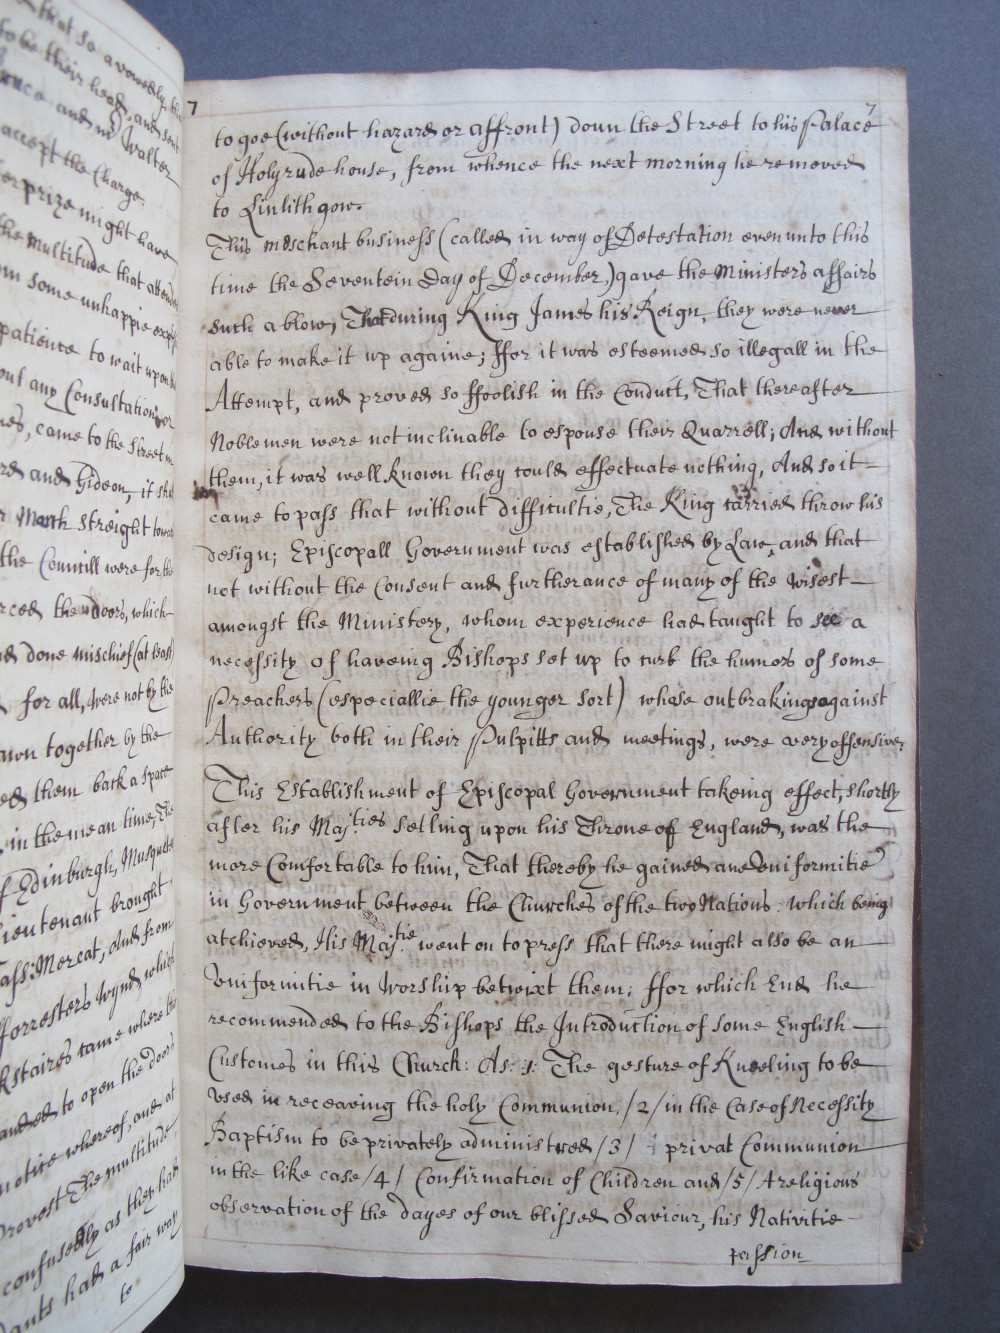 that so avowedly
to be their head, and sent
and mr Walter
accept the Charge.
prize might have
the multitude that attended
some unhappie
patience to wait upon
out any Consultation
came to the Street
and Gideon, it
March Streight
the Councill were for the
the doors, which
done mischief (at least)
for all, were not by the
together by the
them back a space
in the mean time, The
Edinburgh, Musquets
Lieutenant brought
Mercat, and from
fforresters Wynd which
came where the
to open the doors
notice whereof, and at
Provost The multitude,
confusedly as they had
had a fair way
to
7
7
to goe (without hazard or affront) doun the Street to his Palace
of Holyrude house, from whence the next morning he removed
to Linlithgow.
This meschant business (called in way of Detestation even unto this
time the Seventein Day of December,) gave the Ministers affairs
such a blow, That during King James his Reign, they were never
able to make it up againe; ffor it was esteemed so illegall in the
Attempt, and proved so ffoolish in the Conduct, That thereafter
Noblemen were not inclinable to espouse their Quarrell; And without
them, it was well known they could effectuate nothing, And so it
came to pass that without difficultie, The King carried throw his
design; Episcopall Government was established by Law, and that
not without the Consent and furtherance of many of the wisest
amongst the Ministery, whom experience had taught to see a
necessity of haveing Bishops set up to curb the humors of some
Preachers (especiallie the younger sort) whose outbrakings against
Authority both in their Pulpitts and meetings, were very offensive,
This Establishment of Episcopal Government takeing effect, shortly
after his Maj:ties setling upon his Throne of England, was the
more Comfortable to him, That thereby he gained ane Vniformitie
in Government between the Churches of the two Nations: which being
atchieved, His Maj:tie went on to press that there might also be an
Vniformitie in Worship betwixt them; ffor which End he
recommended to the Bishops the Introduction of some English
Customes in this Church: As: 1: The gesture of Kneeling to be
vsed in receaving the holy Communion, /2/ in the Case of Necessity
Baptism to be privately administred /3/ privat Communion
in the like case /4/ Confirmation of Children and /5/ A religious
observation of the dayes of our blissed Saviour, his Nativitie
passion